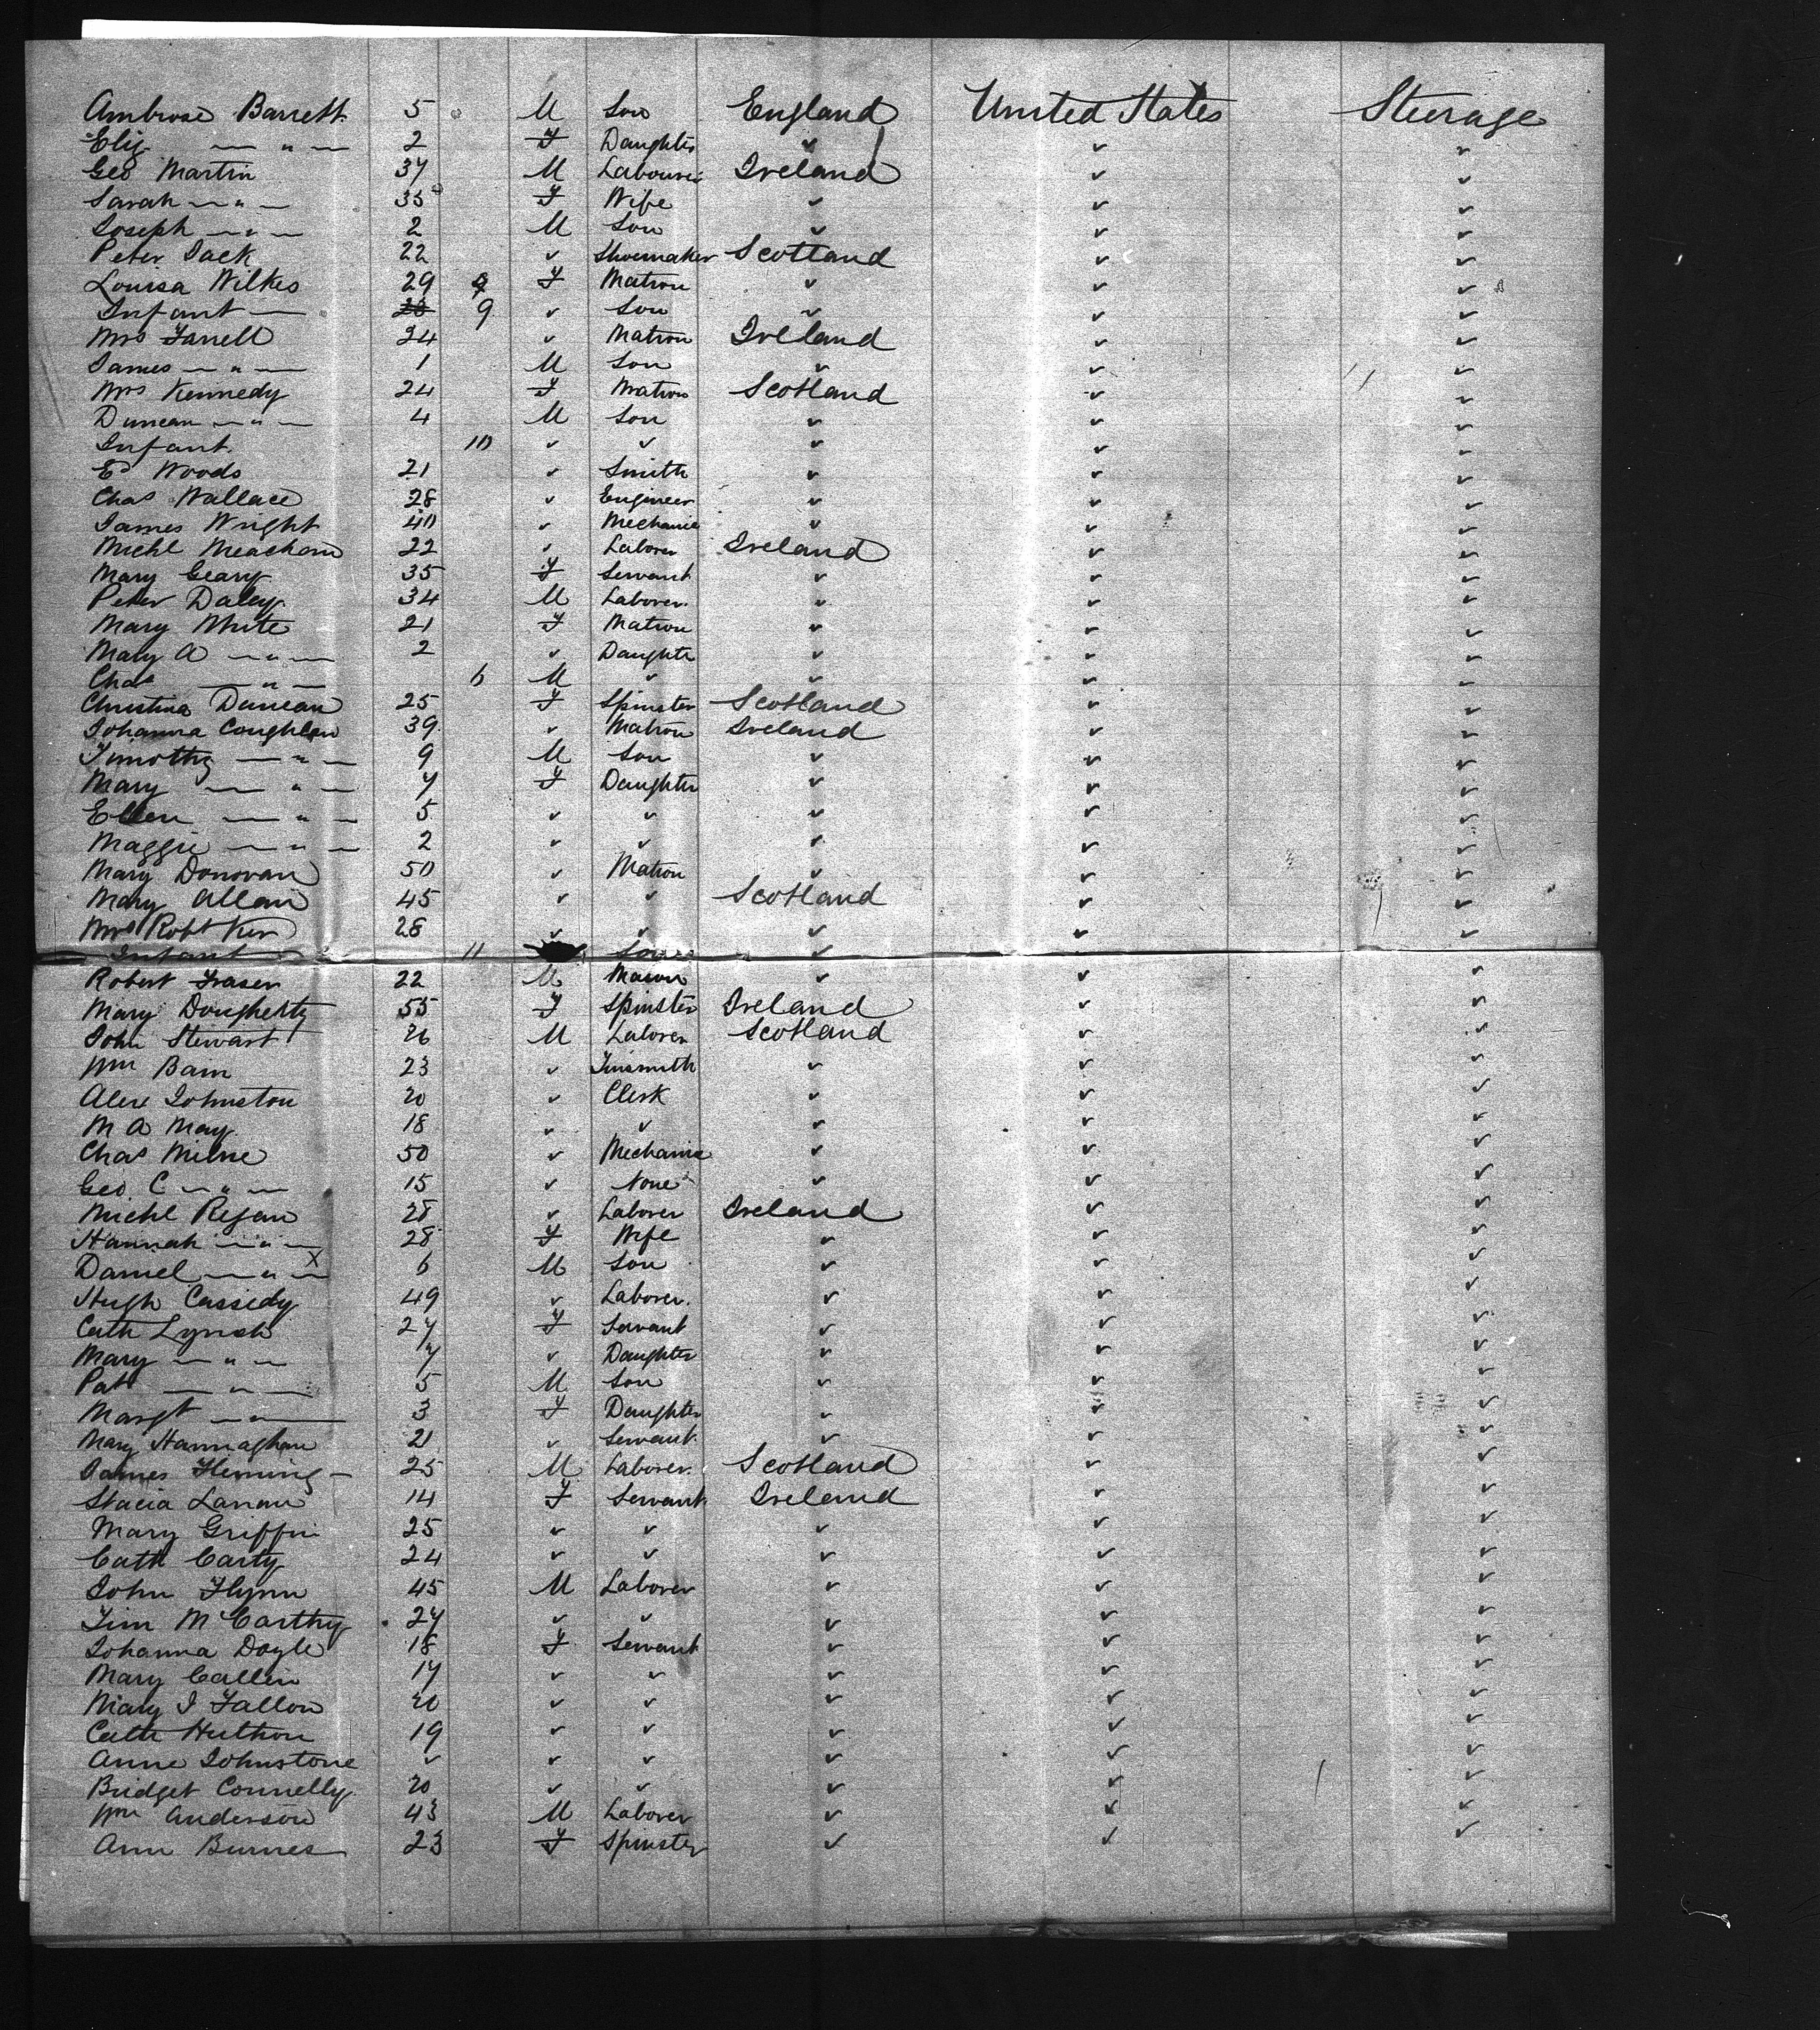 Ambrose Barrett 5 M Son England United States Steerage
Eliz — " — 2 F Daughter ✓ ✓ ✓
Geo Martin 37 M Labourer Ireland ✓ ✓
Sarah — " — 35 F Wife ✓ ✓ ✓
Joseph — " — 2 M Son ✓ ✓ ✓
Peter Jack 22 ✓ Shoemaker Scotland ✓ ✓
Louisa Wilkes 29 F Matron ✓ ✓ ✓
Infant — 9 ✓ Son ✓ ✓ ✓
Mrs Farrell 24 ✓ Matron Ireland ✓ ✓
James — " — 1 M Son ✓ ✓ ✓
Mrs Kennedy 24 F Matron Scotland ✓ ✓
Duncan — " — 4 M Son ✓ ✓ ✓
Infant 10 ✓ ✓ ✓ ✓ ✓
Ed Woods 21 ✓ Smith ✓ ✓ ✓
Chas Wallace 28 ✓ Engineer ✓ ✓ ✓
James Wright 40 ✓ Mechanic ✓ ✓ ✓
Michl Meacham 22 ✓ Laborer Ireland ✓ ✓
Mary Geary 35 F Servant ✓ ✓ ✓
Peter Daley 34 M Laborer ✓ ✓ ✓
Mary White 21 F Matron ✓ ✓ ✓
Mary A — " — 2 ✓ Daughter ✓ ✓ ✓
Chas — " — 6 M ✓ ✓ ✓ ✓
Christina Duncan 25 F Spinster Scotland ✓ ✓
Johanna Coughlan 39 ✓ Matron Ireland ✓ ✓
Timothy — " — 9 M Son ✓ ✓ ✓
Mary — " — 7 F Daughter ✓ ✓ ✓
Ellen — " — 5 ✓ ✓ ✓ ✓ ✓
Maggie — " — 2 ✓ ✓ ✓ ✓ ✓
Mary Donovan 50 ✓ Matron ✓ ✓ ✓
Mary Allan 45 ✓ ✓ Scotland ✓ ✓
Mrs Robt Ker 28 ✓ ✓ ✓ ✓ ✓
Infant 11 Son ✓
Robert Fraser 22 M Mason ✓ ✓ ✓
Mary Dougherty 55 F Spinster Ireland ✓ ✓
John Stewart 26 M Laborer Scotland ✓ ✓
Wm Bain 23 ✓ Tinsmith ✓ ✓ ✓
Alex Johnston 20 ✓ Clerk ✓ ✓ ✓
M A May 18 ✓ ✓ ✓ ✓ ✓
Chas Milne 50 ✓ Mechanic ✓ ✓ ✓
Geo. C — " — 15 ✓ None ✓ ✓ ✓
Michl Regan 28 ✓ Laborer Ireland ✓ ✓
Hannah — " — 28 F Wife ✓ ✓ ✓
Daniel — " — X 6 M Son ✓ ✓ ✓
Hugh Cassedy 49 ✓ Laborer ✓ ✓ ✓
Cath Lynch 27 F Servant ✓ ✓ ✓
Mary — " — 7 ✓ Daughter ✓ ✓ ✓
Pat — " — 5 M Son ✓ ✓ ✓
Margt — " — 3 F Daughter ✓ ✓ ✓
Mary Hannaghan 21 ✓ Servant ✓ ✓ ✓
James Fleming — 25 M Laborer Scotland ✓ ✓
Stacia Lanan 14 F Servant Ireland ✓ ✓
Mary Griffin 25 ✓ ✓ ✓ ✓ ✓
Cath Carty 24 ✓ ✓ ✓ ✓ ✓
John Flynn 45 M Laborer ✓ ✓ ✓
Tim McCarthy 27 ✓ ✓ ✓ ✓ ✓
Johanna Doyle 18 F Servant ✓ ✓ ✓
Mary Callin 17 ✓ ✓ ✓ ✓ ✓
Mary J Fallon 20 ✓ ✓ ✓ ✓ ✓
Cath Huthon 19 ✓ ✓ ✓ ✓ ✓
Anne Johnstone ✓ ✓ ✓ ✓ ✓ ✓
Bridget Connelly 20 ✓ ✓ ✓ ✓ ✓
Wm Anderson 43 M Laborer ✓ ✓ ✓
Ann Burnes 23 F Spinster ✓ ✓ ✓